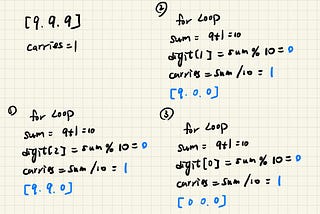 [9, 9, 9]
carries = 1
①
for loop
sum = 9+1=10
digit[2] = sum % 10 = 0
carries = sum /10 = 1
[9, 9, 0]
②
for loop
sum = 9+1=10
digit[1] = sum % 10 = 0
carries = sum /10 = 1
[9, 0, 0]
③
for loop
sum = 9+1=10
digit[0] = sum % 10 = 0
carries = sum /10 = 1
[0 0 0]